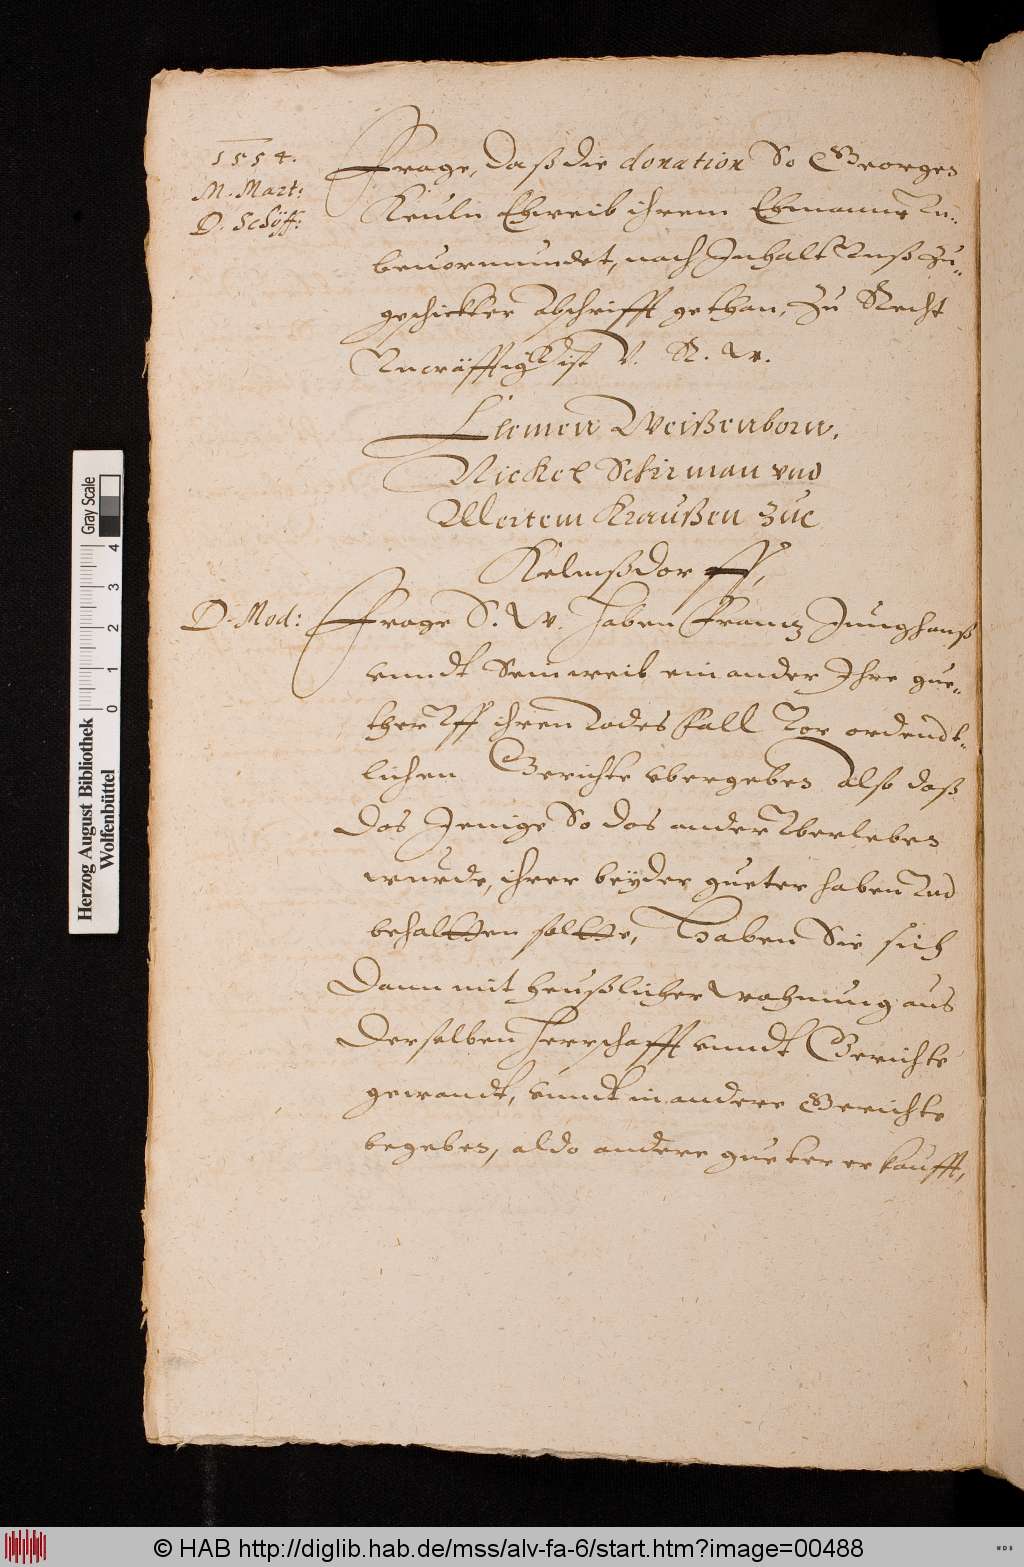 1554.
M. Mart:
D. Schöff:
Frage, Daß die donation So Georgen
Keuln Eheweib ihrem Ehmanne Un-
beuormundet, nach Inhalt Unß Zu-
geschickter Abschrifft gethan, Zu Recht
Uncräfftig ist V. R. W.
Clemen Weißenborn,
Nickel Schirman vnd
Mertem Kraußen zue
Kelmßdorff,
D. Mod:
Frage S. W. Haben Frantz Junghanß
vnndt Sein weib ein ander Ihre gue-
ther Uff ihren Todes Fall Vor ordendt-
lichen Gerichte vbergeben also daß
Das Jenige So das ander Uberleben
wurde, ihrer beyder gueter haben Und
behaltten soltte, Haben Sie sich
Dann mit heußlicher wohnung aus
Derselben Herrschafft vnndt Gerichte
gewandt, vnndt in andere Gerichte
begeben, aldo andere gueter erkaufft,
Herzog August Bibliothek
Wolfenbüttel
0 1 2 3 4
Gray Scale
© HAB http://diglib.hab.de/mss/alv-fa-6/start.htm?image=00488